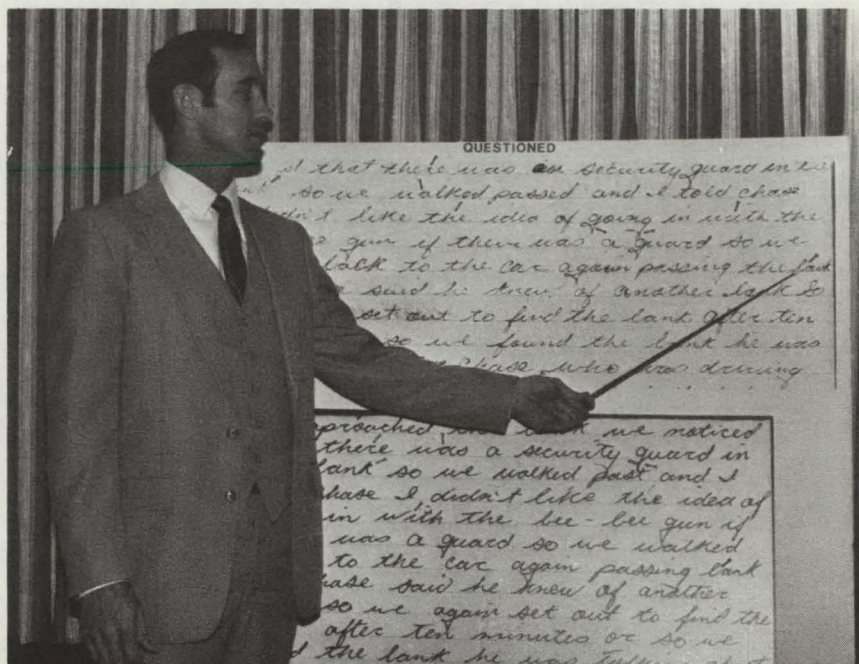 QUESTIONED
d that there was an security guard in the
so we walked passed and I told chase
dn't like the idea of going in with the
gun if there was a guard so we
back to the car again passing the bank
said he knew of another bank so
set out to find the bank after ten
so we found the bank he was
chase who was driving
aproached the bank we noticed
there was a security guard in
bank so we walked past and I
hase I didn't like the idea of
in with the bee-bee gun if
was a guard so we walked
to the car again passing bank
hase said he knew of another
so we again set out to find the
after ten minutes or so we
d the bank he was